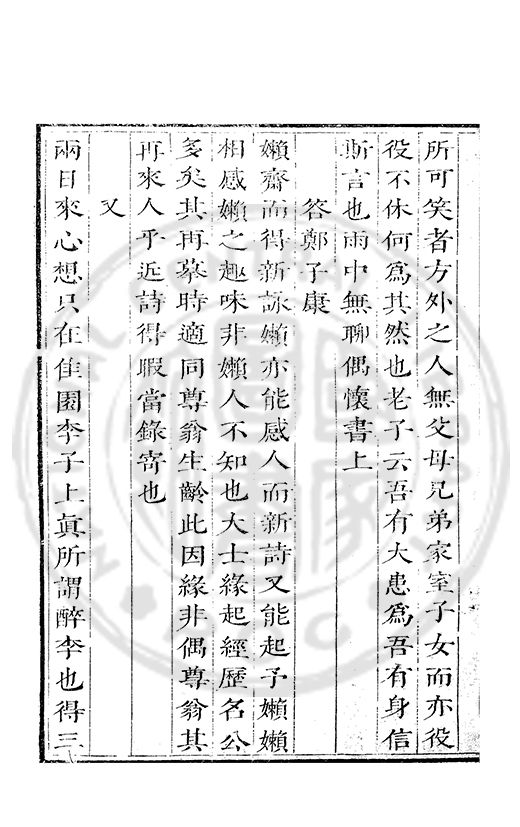 所可笑者方外之人無父母兄弟家室子女而亦役
役不休何爲其然也老子云吾有大患爲吾有身信
斯言也雨中無聊偶懷書上
答鄭子康
嬾齋而得新詠嬾亦能感人而新詩又能起予嬾嬾
相感嬾之趣味非嬾人不知也大士緣起經歷名公
多矣其再摹時適同尊翁生齡此因緣非偶尊翁其
再來人乎近詩得暇當錄寄也
又
兩日來心想只在隹園李子上眞所謂醉李也得三